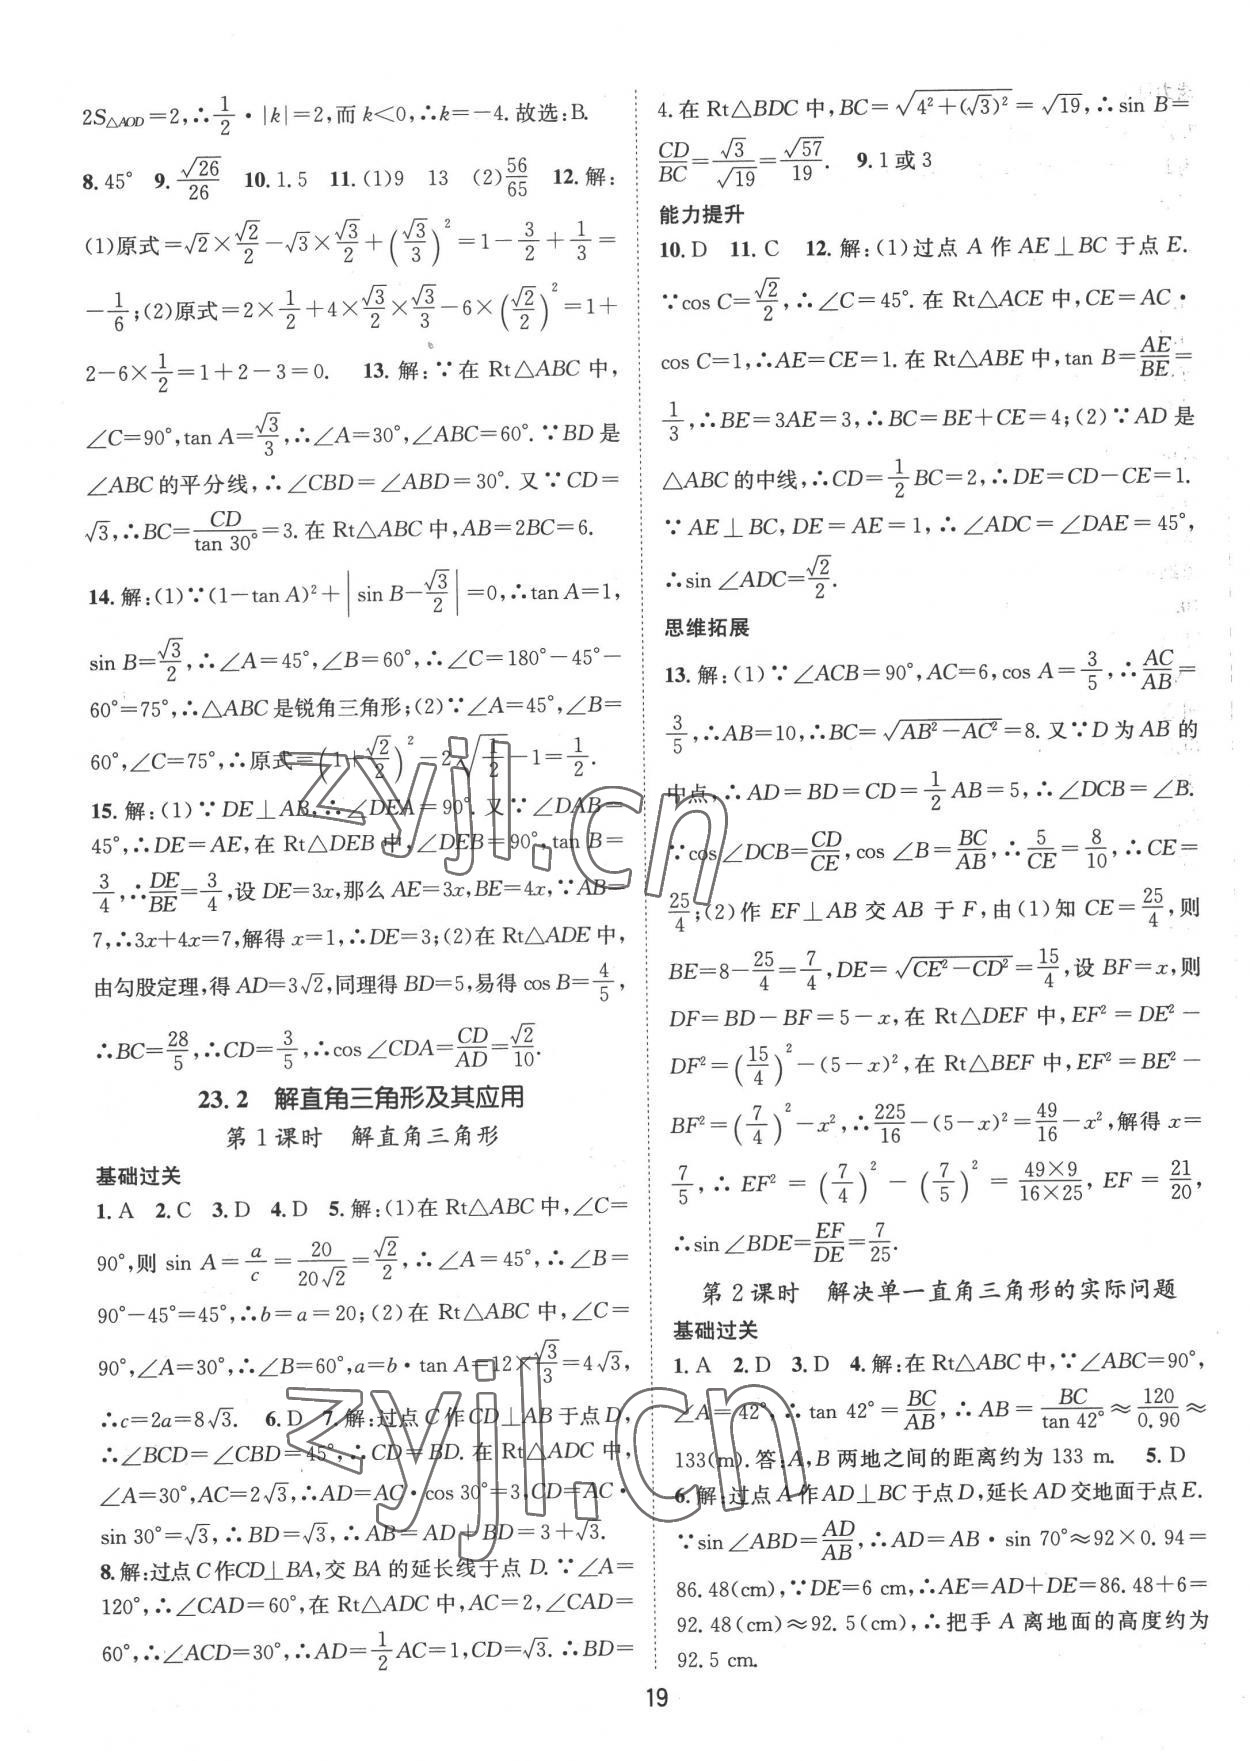 2S△AOD=2,∴1/2·|k|=2,而k<0,∴k=-4.故选:B.
8.45° 9.√26/26 10.1.5 11.(1)9 13 (2)56/65 12.解:
(1)原式=√2×√2/2-√3×√3/2+(√3/3)²=1-3/2+1/3=
-1/6;(2)原式=2×1/2+4×√3/2×√3/3-6×(√2/2)²=1+
2-6×1/2=1+2-3=0. 13.解:∵在Rt△ABC中,
∠C=90°,tan A=√3/3,∴∠A=30°,∠ABC=60°.∵BD是
∠ABC的平分线,∴∠CBD=∠ABD=30°.又∵CD=
√3,∴BC=CD/tan 30°=3.在Rt△ABC中,AB=2BC=6.
14.解:(1)∵(1-tan A)²+|sin B-√3/2|=0,∴tan A=1,
sin B=√3/2,∴∠A=45°,∠B=60°,∴∠C=180°-45°-
60°=75°,∴△ABC是锐角三角形;(2)∵∠A=45°,∠B=
60°,∠C=75°,∴原式=(1+√2/2)²-2√(1/2)-1=1/2.
15.解:(1)∵DE⊥AB,∴∠DEA=90°.又∵∠DAB=
45°,∴DE=AE,在Rt△DEB中,∠DEB=90°,tan B=
3/4,∴DE/BE=3/4,设DE=3x,那么AE=3x,BE=4x,∵AB=
7,∴3x+4x=7,解得x=1,∴DE=3;(2)在Rt△ADE中,
由勾股定理,得AD=3√2,同理得BD=5,易得cos B=4/5,
∴BC=28/5,∴CD=3/5,∴cos∠CDA=CD/AD=√2/10.
23.2 解直角三角形及其应用
第1课时 解直角三角形
基础过关
1.A 2.C 3.D 4.D 5.解:(1)在Rt△ABC中,∠C=
90°,则sin A=a/c=20/20√2=√2/2,∴∠A=45°,∴∠B=
90°-45°=45°,∴b=a=20;(2)在Rt△ABC中,∠C=
90°,∠A=30°,∴∠B=60°,a=b·tan A=12×√3/3=4√3,
∴c=2a=8√3. 6.D 7.解:过点C作CD⊥AB于点D,
∴∠BCD=∠CBD=45°,∴CD=BD.在Rt△ADC中,
∠A=30°,AC=2√3,∴AD=AC·cos 30°=3,CD=AC·
sin 30°=√3,∴BD=√3,∴AB=AD+BD=3+√3.
8.解:过点C作CD⊥BA,交BA的延长线于点D.∵∠A=
120°,∴∠CAD=60°,在Rt△ADC中,AC=2,∠CAD=
60°,∴∠ACD=30°,∴AD=1/2AC=1,CD=√3.∴BD=
4.在Rt△BDC中,BC=√(4²+(√3)²)=√19,∴sin B=
CD/BC=√3/√19=√57/19. 9.1或3
能力提升
10.D 11.C 12.解:(1)过点A作AE⊥BC于点E.
∵cos C=√2/2,∴∠C=45°.在Rt△ACE中,CE=AC·
cos C=1,∴AE=CE=1.在Rt△ABE中,tan B=AE/BE=
1/3,∴BE=3AE=3,∴BC=BE+CE=4;(2)∵AD是
△ABC的中线,∴CD=1/2BC=2,∴DE=CD-CE=1.
∵AE⊥BC,DE=AE=1,∴∠ADC=∠DAE=45°,
∴sin∠ADC=√2/2.
思维拓展
13.解:(1)∵∠ACB=90°,AC=6,cos A=3/5,∴AC/AB=
3/5,∴AB=10,∴BC=√(AB²-AC²)=8.又∵D为AB的
中点,∴AD=BD=CD=1/2AB=5,∴∠DCB=∠B.
∵cos∠DCB=CD/CE,cos∠B=BC/AB,∴5/CE=8/10,∴CE=
25/4;(2)作EF⊥AB交AB于F,由(1)知CE=25/4,则
BE=8-25/4=7/4,DE=√(CE²-CD²)=15/4,设BF=x,则
DF=BD-BF=5-x,在Rt△DEF中,EF²=DE²-
DF²=(15/4)²-(5-x)²,在Rt△BEF中,EF²=BE²-
BF²=(7/4)²-x²,∴225/16-(5-x)²=49/16-x²,解得x=
7/5,∴EF²=(7/4)²-(7/5)²=49×9/16×25,EF=21/20,
∴sin∠BDE=EF/DE=7/25.
第2课时 解决单一直角三角形的实际问题
基础过关
1.A 2.D 3.D 4.解:在Rt△ABC中,∵∠ABC=90°,
∠A=42°,∴tan 42°=BC/AB,∴AB=BC/tan 42°≈120/0.90≈
133(m).答:A,B两地之间的距离约为133 m. 5.D
6.解:过点A作AD⊥BC于点D,延长AD交地面于点E.
∵sin∠ABD=AD/AB,∴AD=AB·sin 70°≈92×0.94=
86.48(cm),∵DE=6 cm,∴AE=AD+DE=86.48+6=
92.48(cm)≈92.5(cm),∴把手A离地面的高度约为
92.5 cm.
19
zyjl.cn
zyjl.cn